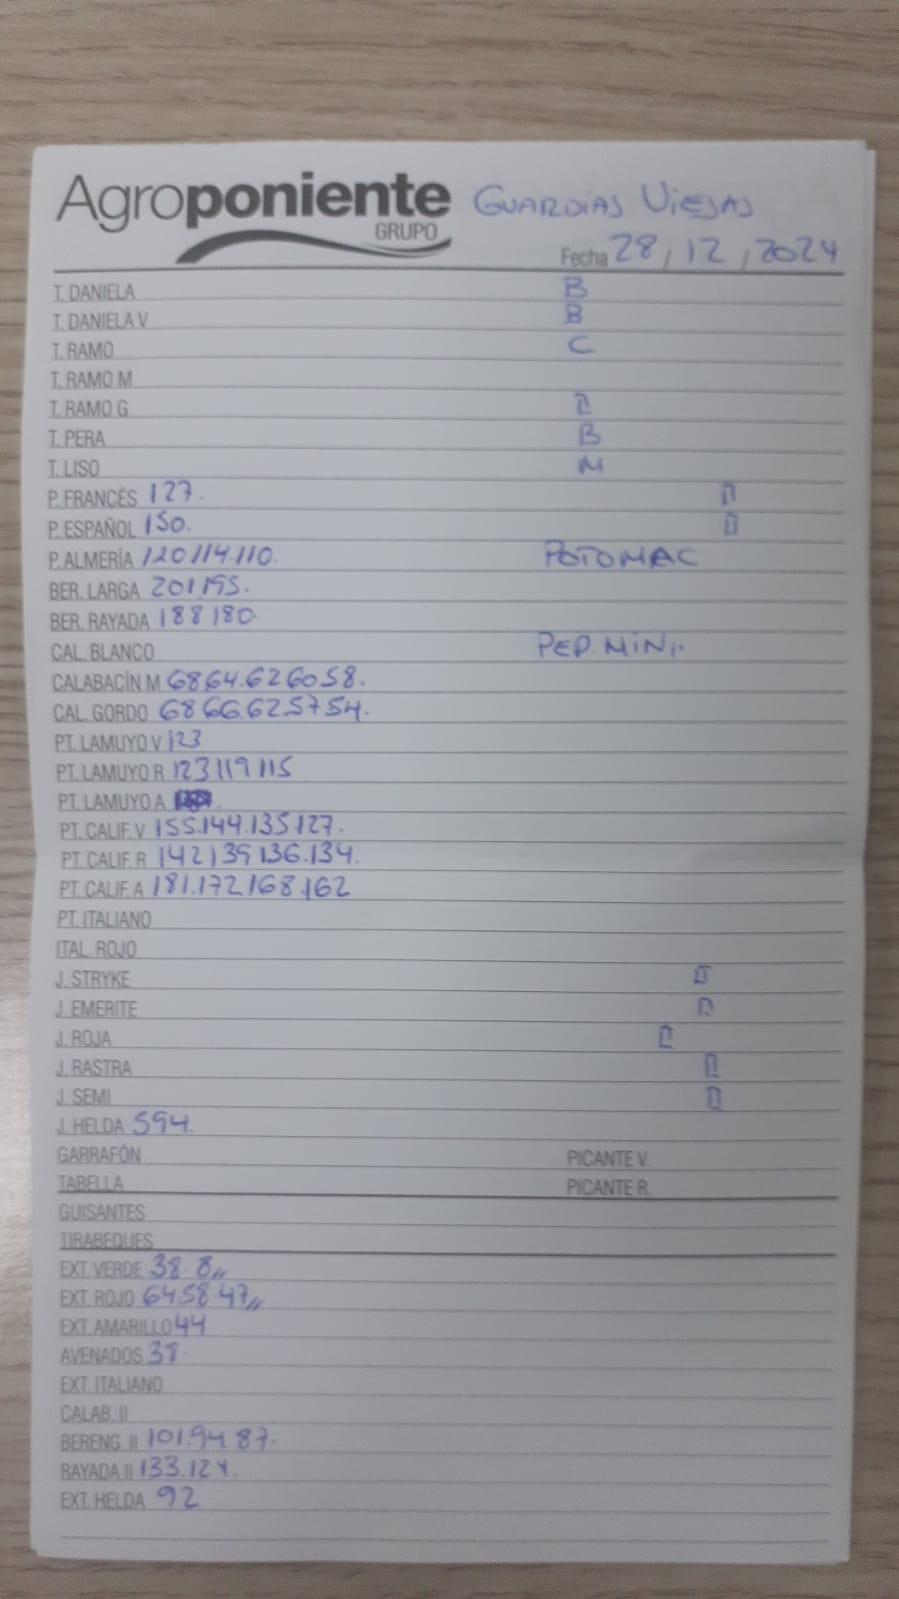 Agroponiente GUARDIAS VIEJAS
GRUPO
Fecha 28/12/2024
T. DANIELA B
T. DANIELA V B
T. RAMO C
T. RAMO M
T. RAMO G
T. PERA B
T. LISO M
P. FRANCÉS 127.
P. ESPAÑOL 150.
P. ALMERÍA 120 114.110. POTOMAC
BER. LARGA 201,195.
BER. RAYADA 188 180.
CAL. BLANCO PEP. MINI.
CALABACÍN M 68 64.62 60 58.
CAL. GORDO 68 66.62 57 54.
PT. LAMUYO V 123
PT. LAMUYO R 123 119 115
PT. LAMUYO A
PT. CALIF. V 155.144.135 127.
PT. CALIF. R 142 139 136.134.
PT. CALIF. A 181.172 168.162
PT. ITALIANO
ITAL. ROJO
J. STRYKE
J. EMERITE
J. ROJA
J. RASTRA
J. SEMI
J. HELDA 594.
GARRAFÓN PICANTE V.
TABELLA PICANTE R.
GUISANTES
TIRABEQUES
EXT. VERDE 38. 8,,
EXT. ROJO 64 58.47,,
EXT. AMARILLO 44
AVENADOS 38.
EXT. ITALIANO
CALAB. II
BERENG. II 101.94 87.
RAYADA II 133.124.
EXT. HELDA 92